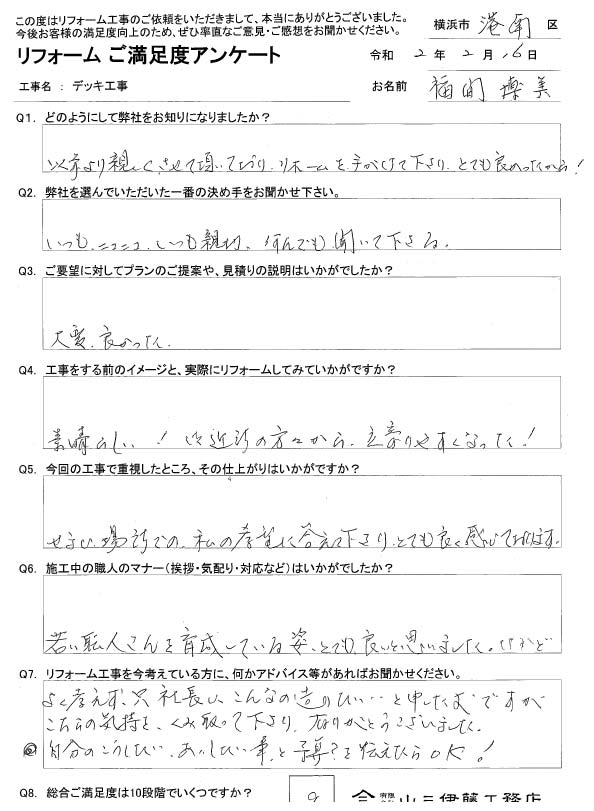 この度はリフォーム工事のご依頼をいただきまして、本当にありがとうございました。
今後お客様の満足度向上のため、ぜひ率直なご意見・ご感想をお聞かせください。
横浜市 港南 区
リフォーム ご満足度アンケート
令和 2 年 2 月 16 日
工事名 : デッキ工事
お名前 福間 博美
Q1. どのようにして弊社をお知りになりましたか?
以前より親しくさせて頂いており、リホームを手がけて下さり、とても良かったから!
Q2. 弊社を選んでいただいた一番の決め手をお聞かせ下さい。
いつも、ニコニコ、いつも親切、何んでも聞いて下さる。
Q3. ご要望に対してプランのご提案や、見積りの説明はいかがでしたか?
大変、良かった。
Q4. 工事をする前のイメージと、実際にリフォームしてみていかがですか?
素晴らしい! 近所の方々から、立寄りやすくなった!
Q5. 今回の工事で重視したところ、その仕上がりはいかがですか?
せまい場所での、私の希望に答えて下さり、とても良く感じております。
Q6. 施工中の職人のマナー(挨拶・気配り・対応など)はいかがでしたか?
若い職人さんを育成している姿、とても、良いと思いました。
Q7. リフォーム工事を今考えている方に、何かアドバイス等があればお聞かせください。
よく考えず、只 社長に、こんなの造りたい‥と申したまでですが
こちらの気持を、くみ取って下さり、ありがとうございました。
◎ 自分のこうしたい、あゝしたい事、と予算?を伝えたらOK!
Q8. 総合ご満足度は10段階でいくつですか?
9
有限会社 山三伊藤工務店